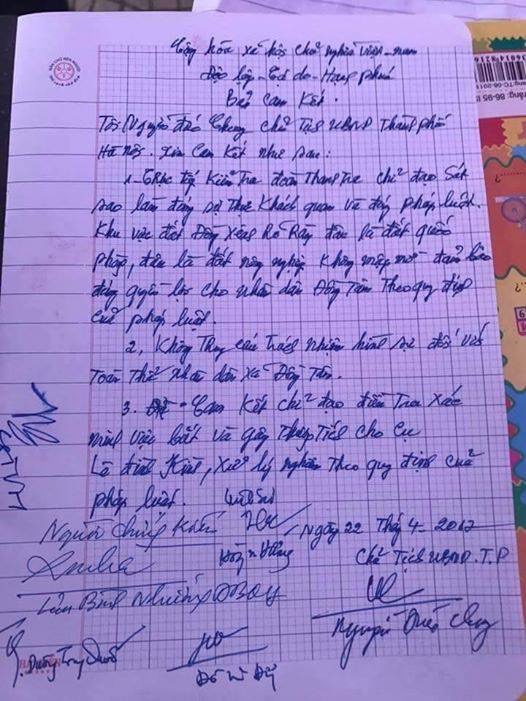 Cộng hòa xã hội chủ nghĩa Việt-nam
Độc lập - Tự do - Hạnh phúc
Bản cam kết.
Tôi Nguyễn Đức Chung chủ tịch UBND Thành phố
Hà Nội. Xin cam kết như sau:
1- Trực tiếp kiểm tra đoàn thanh tra chỉ đạo sát
sao làm đúng sự thật khách quan và đúng pháp luật.
Khu vực đất Đồng Xênh rõ ràng đâu là đất quốc
phòng, đâu là đất nông nghiệp không mập mờ đảm bảo
đúng quyền lợi cho nhân dân Đồng Tâm theo quy định
của pháp luật.
2, Không truy cứu trách nhiệm hình sự đối với
toàn thể nhân dân xã Đồng Tâm.
3. Cam kết chỉ đạo điều tra xác
minh việc bắt và gây thương tích cho cụ
Lê Đình Kình, xử lý nghiêm theo quy định của
pháp luật.
Người chứng kiến
Ngày 22 Thg 4 . 2017
Chủ Tịch UBND.T.P
Lưu Bình Nhưỡng ĐBQH
Nguyễn Đức Chung